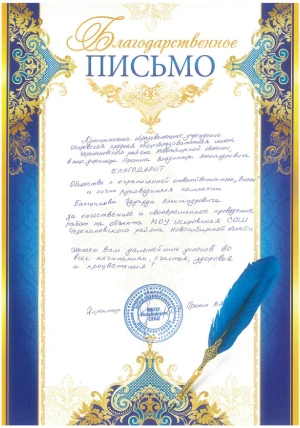 Благодарственное
ПИСЬМО
образовательное учреждение
Искровская средняя общеобразовательная школа
Черепановского района Новосибирской области
в лице директора Владимира
БЛАГОДАРИТ
Общество с ограниченной ответственностью
и лично руководителя компании
Эдуарда
за качественное и своевременное проведение
работ на объекте МОУ Искровская СОШ
Черепановского района Новосибирской области
Желаем Вам дальнейших успехов во
всех начинаниях, счастья, здоровья
и процветания!
Директор